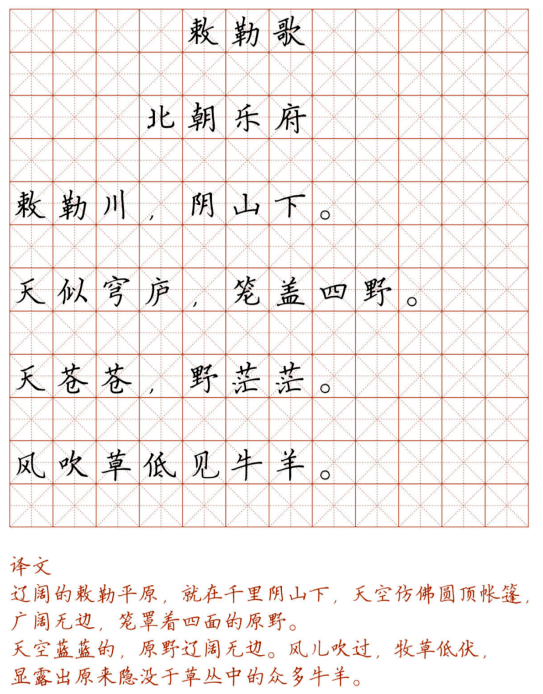 敕勒歌
北朝乐府
敕勒川，阴山下。
天似穹庐，笼盖四野。
天苍苍，野茫茫。
风吹草低见牛羊。
译文
辽阔的敕勒平原，就在千里阴山下，天空仿佛圆顶帐篷，
广阔无边，笼罩着四面的原野。
天空蓝蓝的，原野辽阔无边。风儿吹过，牧草低伏，
显露出原来隐没于草丛中的众多牛羊。